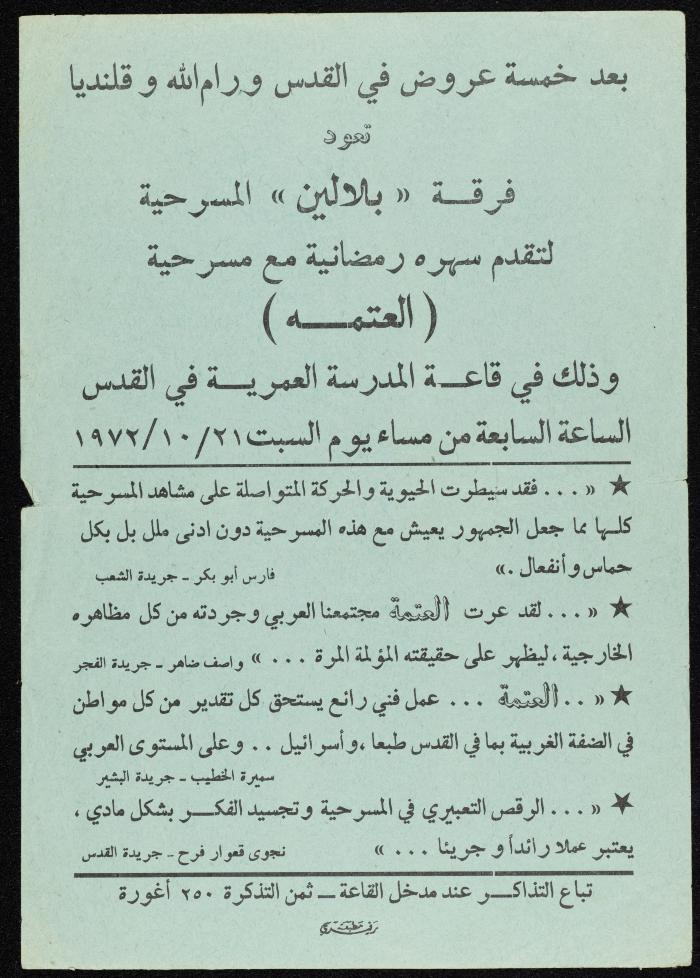 بعد خمسة عروض في القدس ورام الله وقلنديا
تعود
فرقة « بلالين » المسرحية
لتقدم سهره رمضانية مع مسرحية
( العتمـــه )
وذلك في قاعـة المدرسة العمريـة في القدس
الساعة السابعة من مساء يوم السبت ٢١/١٠/١٩٧٢
★ « ... فقد سيطرت الحيوية والحركة المتواصلة على مشاهد المسرحية
كلـها مما جعل الجمهور يعيش مع هذه المسرحية دون ادنى ملل بل بكل
حماس وأنفعال .»
فارس أبو بكر ـ جريدة الشعب
★ « ... لقد عرت العتمة مجتمعنا العربي وجردته من كل مظاهره
الخارجية ، ليظهر على حقيقته المؤلمة المرة ... » واصف ضاهر ـ جريدة الفجر
★ « .. العتمة ... عمل فني رائع يستحق كل تقدير من كل مواطن
في الضفة الغربية بما في القدس طبعا ، وأسرائيل .. وعلى المستوى العربي
سميرة الخطيب ـ جريدة البشير
★ « ... الرقص التعبيري في المسرحية وتجسيد الفكـر بشكل مادي ،
يعتبر عملا رائداً وجريئا ... » نجوى قعوار فرح ـ جريدة القدس
تباع التذاكـر عند مدخل القاعة ـ ثمن التذكرة ٢٥٠ أغورة